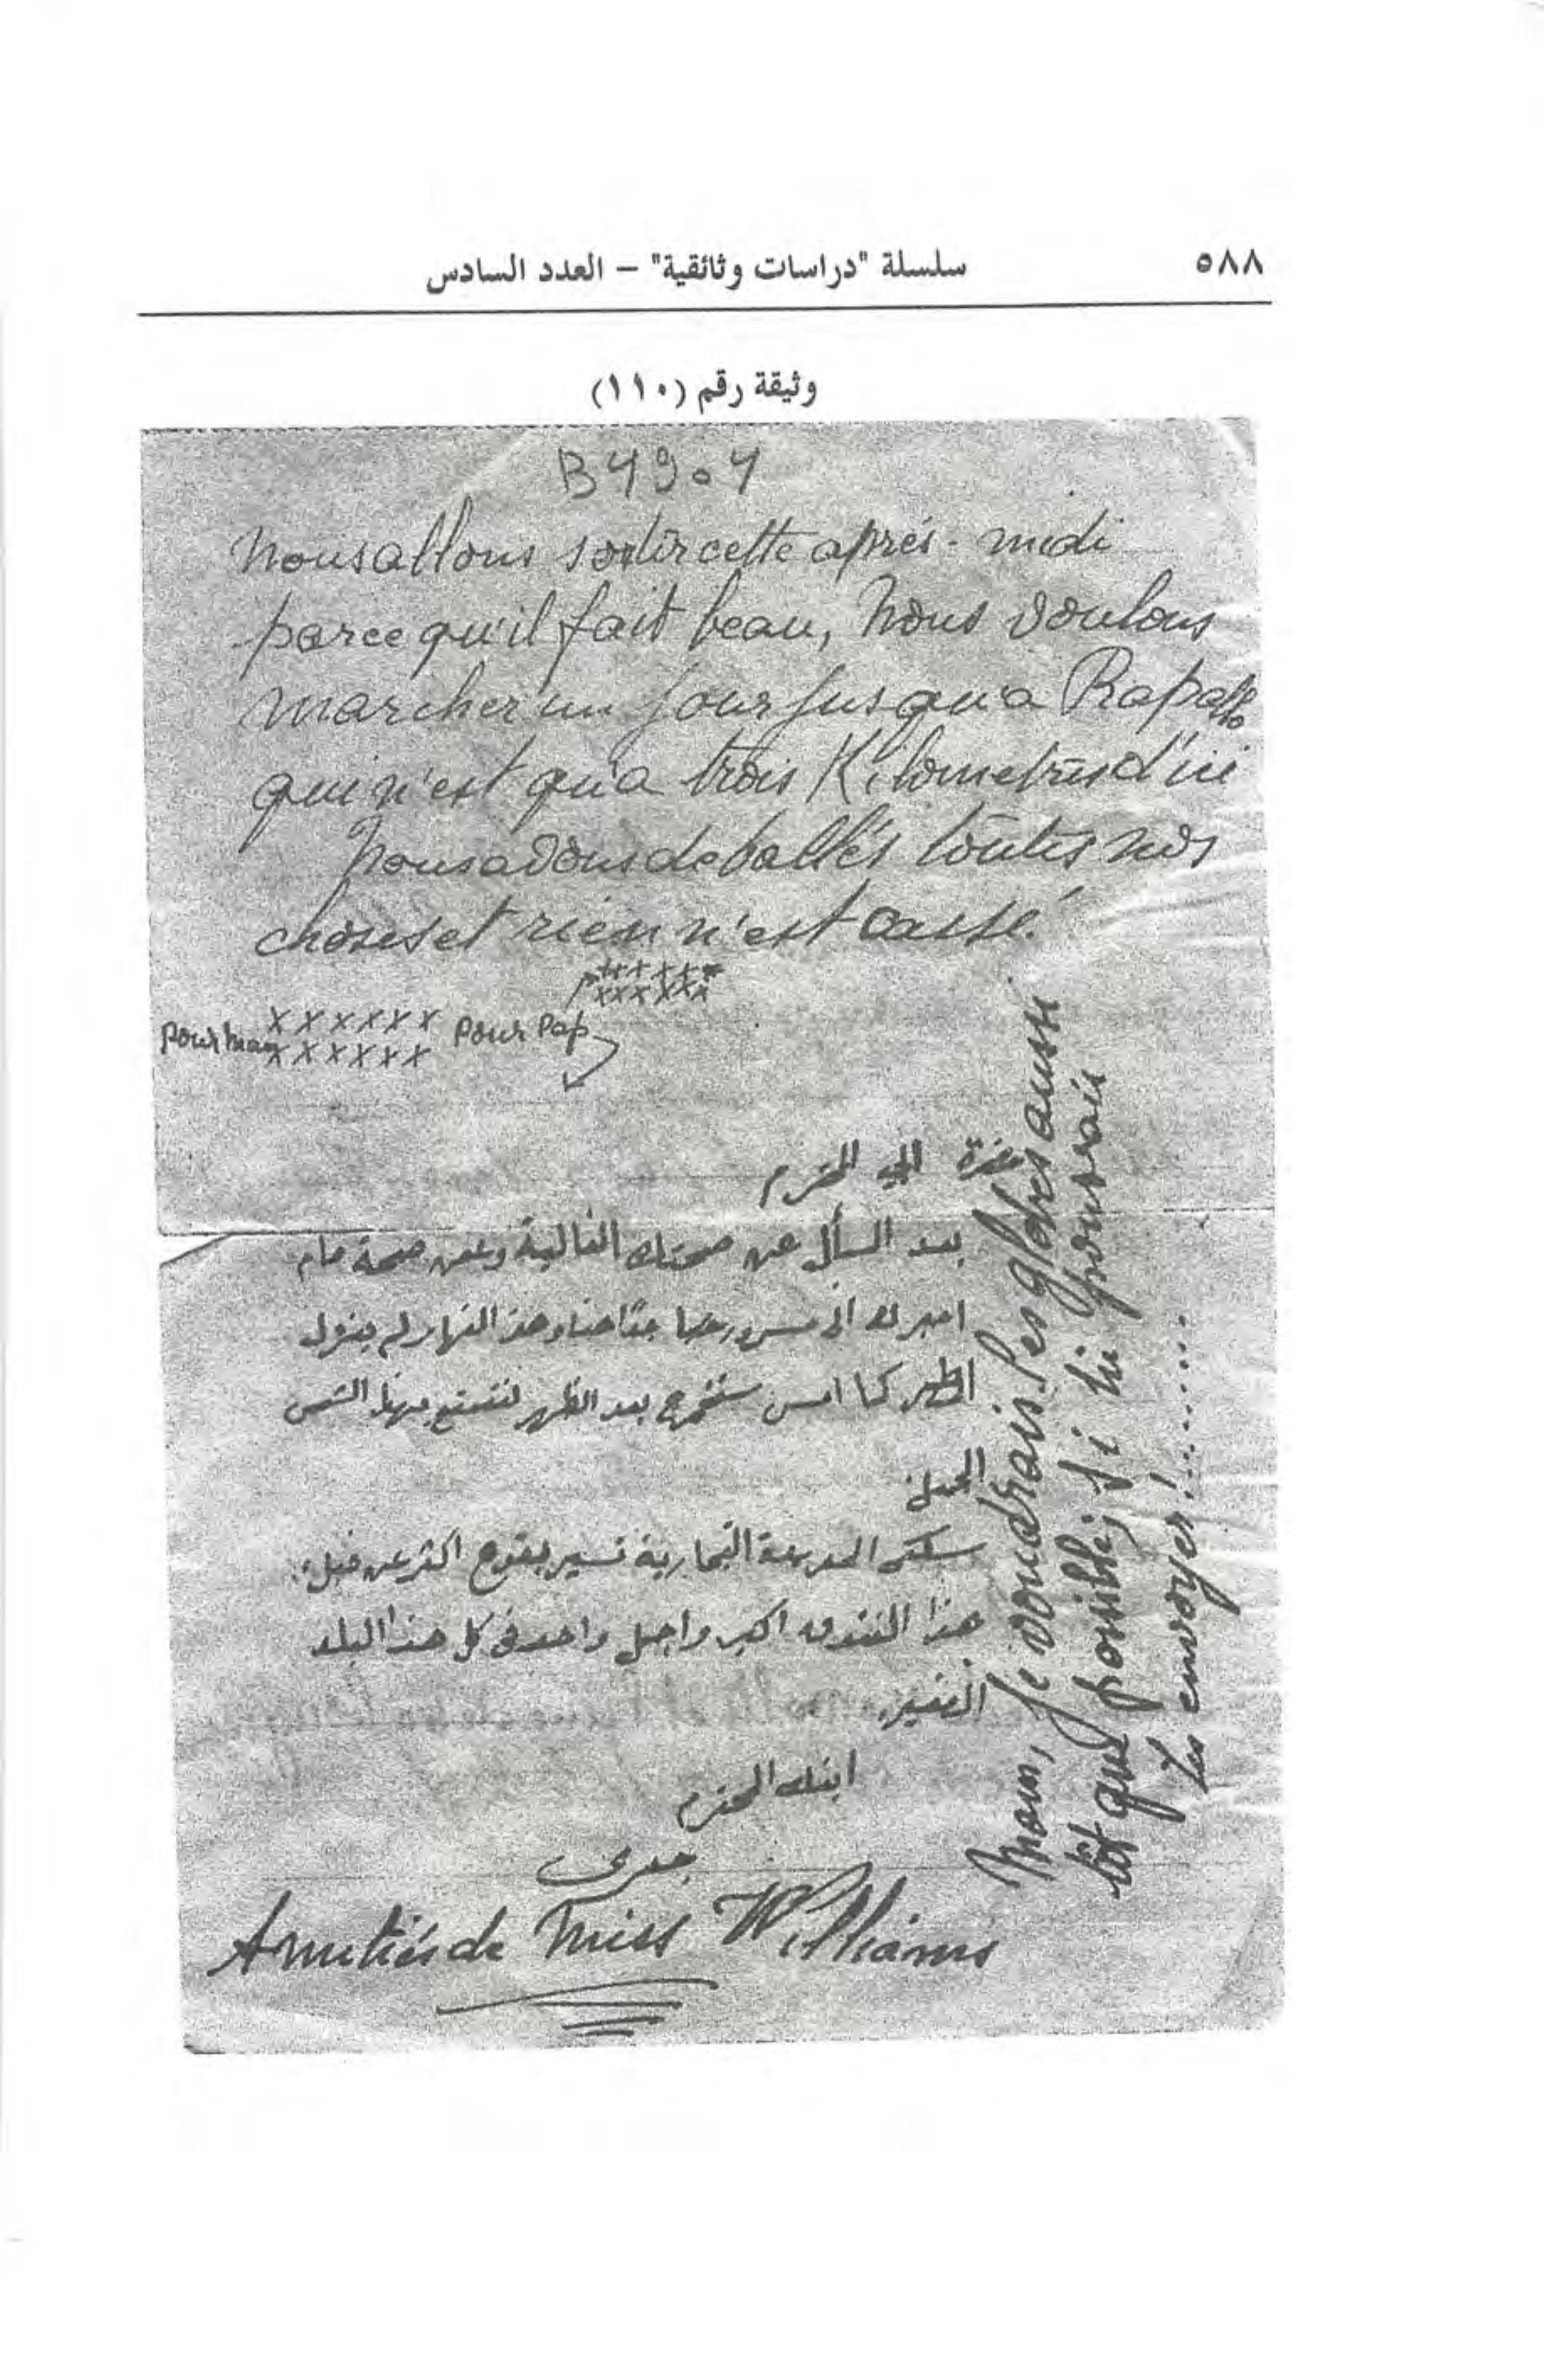 ٥٨٨
سلسلة "دراسات وثائقية" – العدد السادس
وثيقة رقم (١١٠)
B4904
Nous allons sortir cette aprés-midi
parce qu'il fait beau, nous voulons
marcher un jour jusqu'a Rapallo
qui n'est qu'a trois Kilometres d'ici
Nous avons deballés toutes nos
choses et rien n'est cassé.
xxxxxx
xxxxxx
xxxxxx pour Pap
pour Mam xxxxxx
حضرة ابي المحترم
بعد السأل عن صحتك الغالية وعن صحة مام
اخبرك اني مسرور جدًا هنا وهذ النهار لم ينزل
المطر كما امس سنخرج بعد الظهر لنتمتع بهذا الشمس
الجميل
التجارية تسير بقوة اكثر عن قبل.
هذا الفندق اكبر واجمل واحد في كل هذا البلد
الصغير.
ابنك المحترم
Amitiés de Miss Williams
Mam, Je voudrais les globes aussi
tôt que possible, si tu pourrais
les envoyer!.......